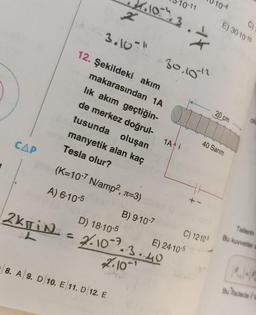 2.10⁻⁴.3 . 1/4
3.10⁻¹¹
30.10⁻¹²
E) 30·10⁻¹⁵
12. Şekildeki akım
makarasından 1A
lık akım geçtiğin-
de merkez doğrul-
tusunda oluşan
manyetik alan kaç
Tesla olur?
20 cm
40 Sarım
1A
+ -
(K=10⁻⁷ N/amp², π=3)
A) 6·10⁻⁵
B) 9·10⁻⁷
C) 12·10⁵
D) 18·10⁻⁵
E) 24·10⁻⁵
CAP
2KπiN / L = 2.10⁻⁷.3.40 / 2.10⁻¹
8. A 9. D 10. E 11. D 12. E